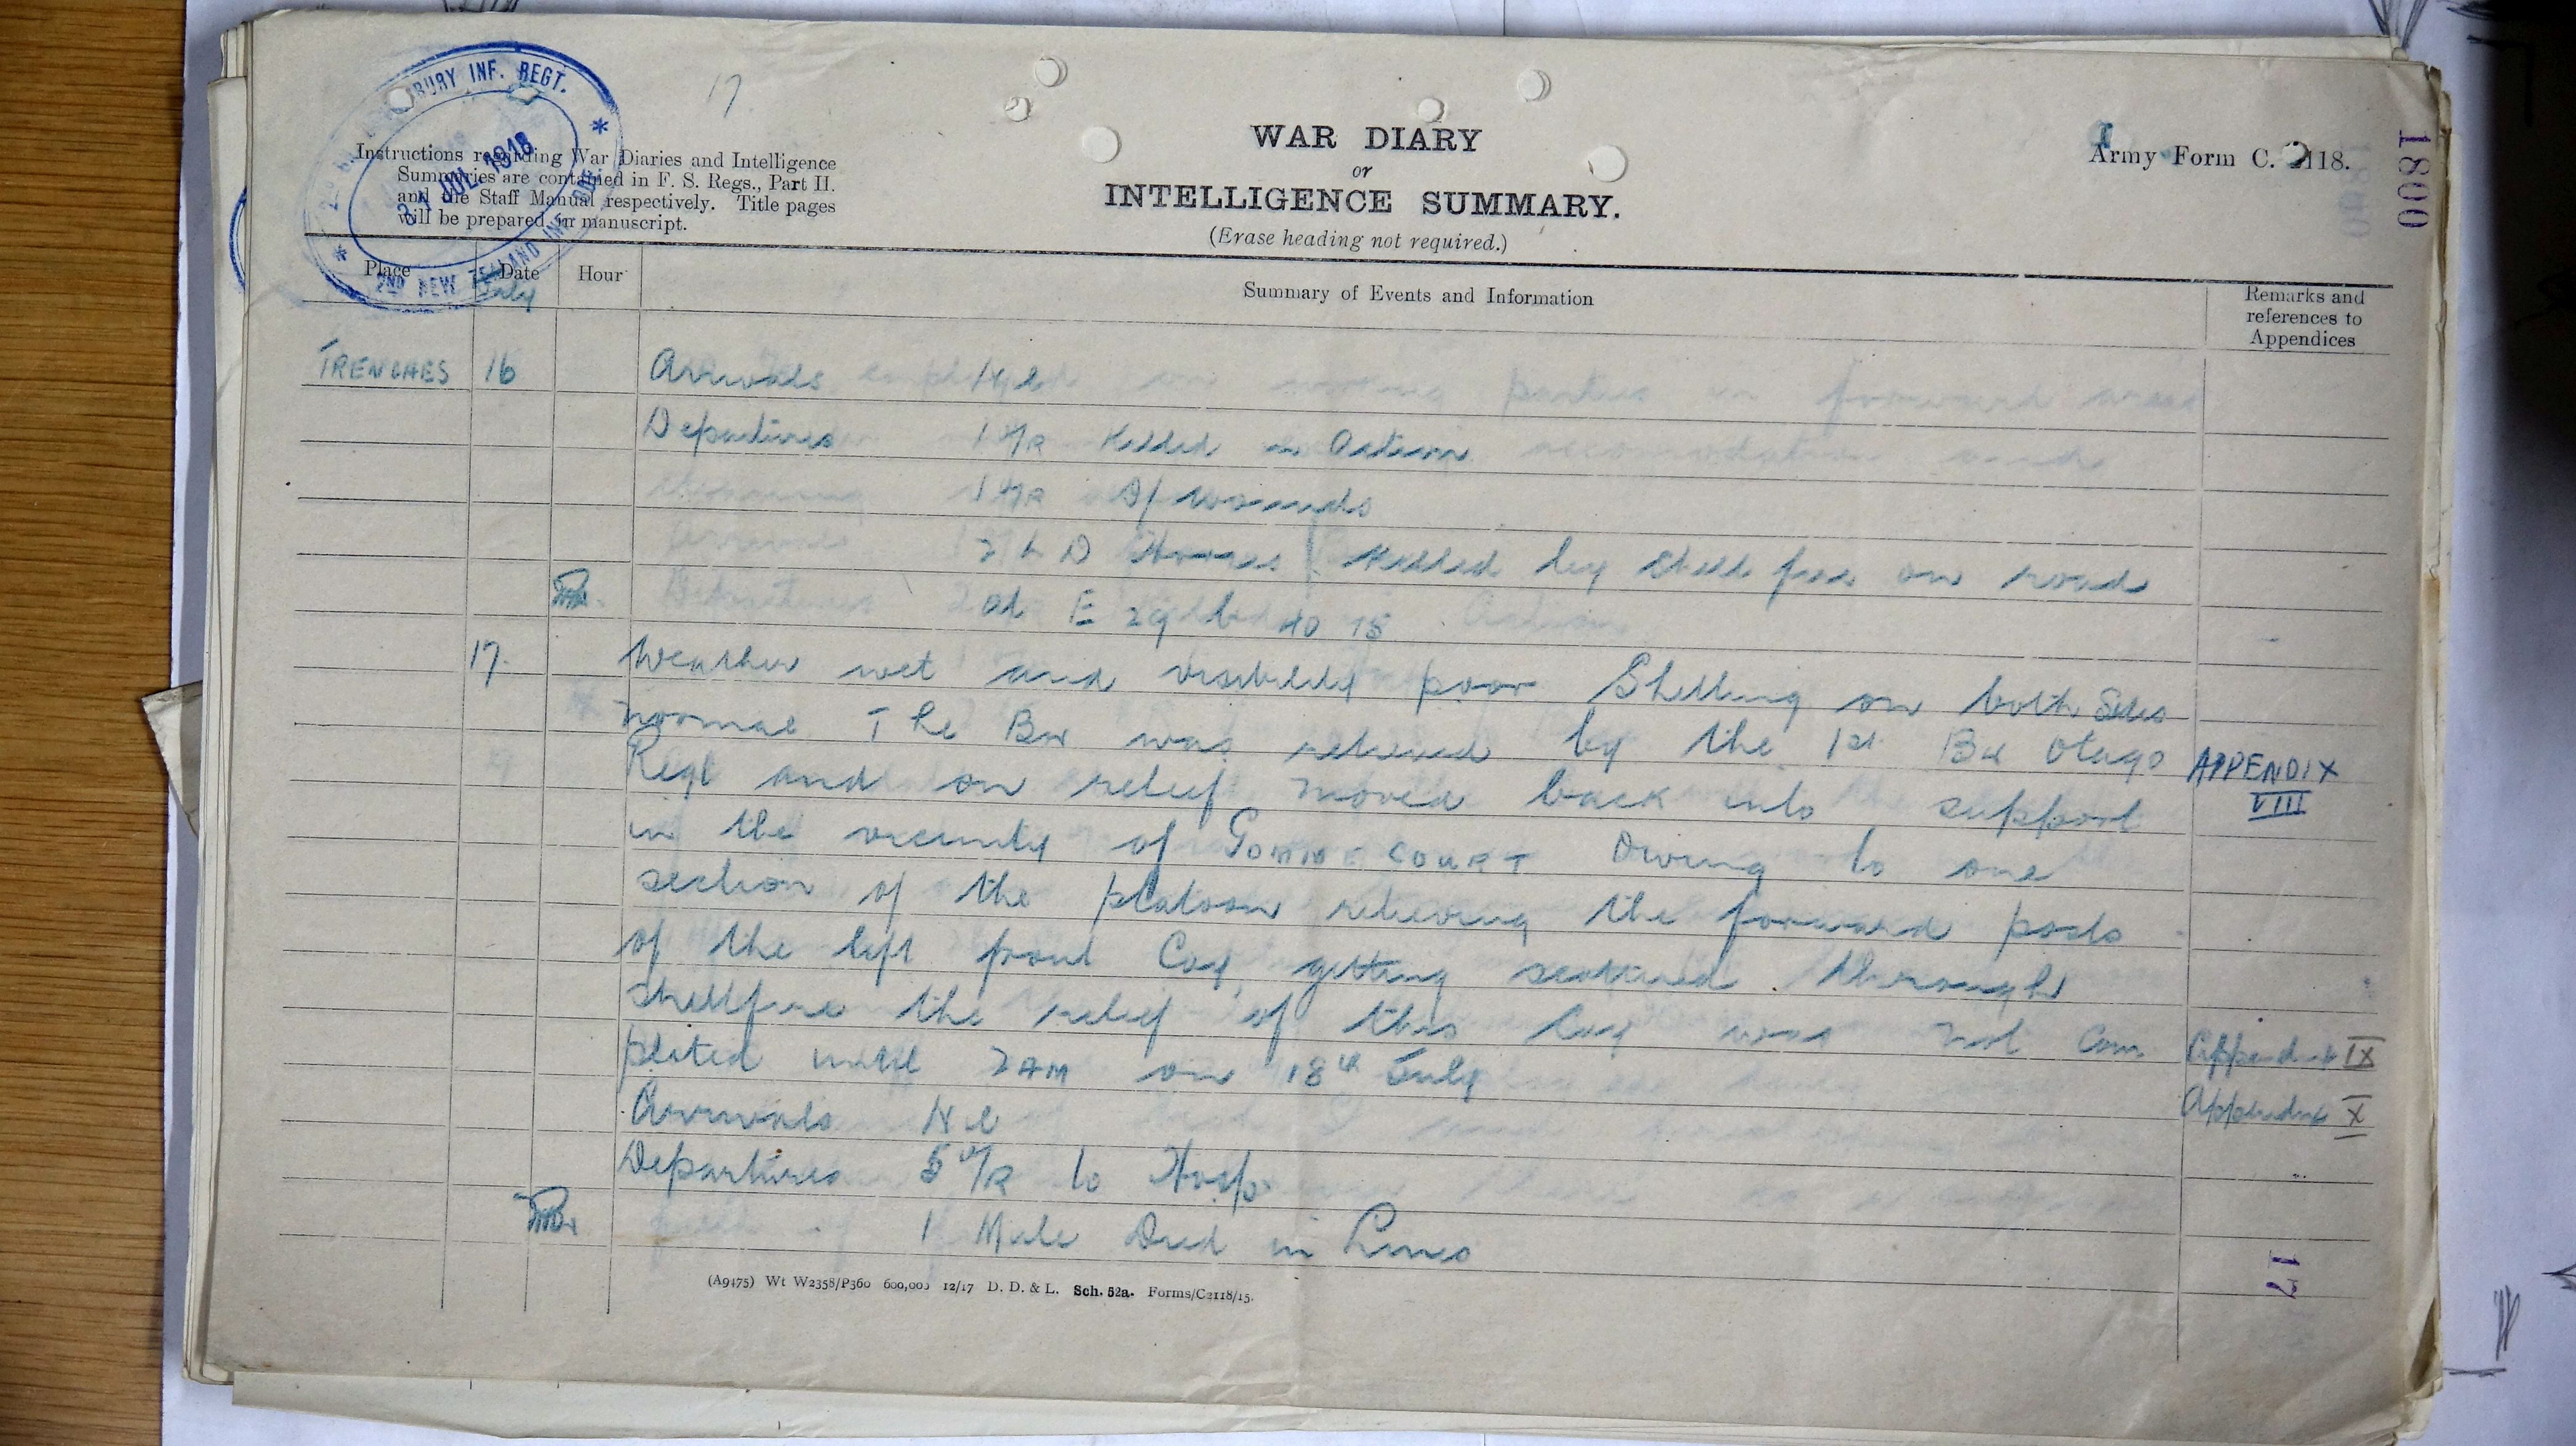 17
WAR DIARY
or
INTELLIGENCE SUMMARY.
(Erase heading not required.)
Army Form C. 2118.
1800
Instructions regarding War Diaries and Intelligence
Summaries are contained in F. S. Regs., Part II.
and the Staff Manual respectively. Title pages
will be prepared in manuscript.
BURY INF. REGT.
31 JUL 1918
2ND NEW ZEALAND INF
Place Date Hour Summary of Events and Information Remarks and
references to
Appendices
July
TRENCHES 16 Arrivals Nil
Departures 1 O/R Killed in Action
1 O/R D/ wounds
2 L D Horses Killed by shell fire on road
at E 29 b 40 75
17. Weather wet and visibility poor Shelling on both sides
normal The Bn was relieved by the 1st Bn Otago
Regt and on relief moved back into support
APPENDIX
VIII
in the vicinity of GOMMECOURT Owing to one
section of the platoon relieving the forward posts
of the left front Coy getting scattered through
shellfire the relief of this Coy was not com
pleted until 2 AM on 18th July
Appendix IX
Arrivals Nil
Appendix X
Departures 5 O/R to Hosp
1 Mule Died in Lines
17
(A9475) Wt W2358/P360 600,000 12/17 D. D. & L. Sch. 52a. Forms/C2118/15.